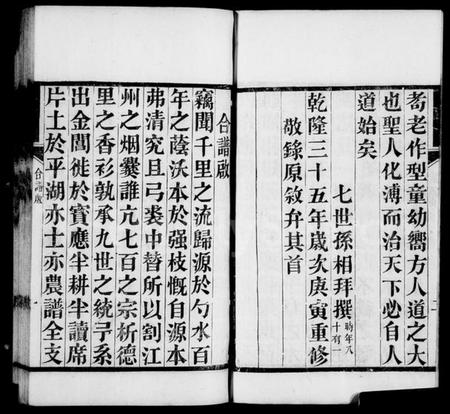 耈老作型童幼嚮方人道之大
也聖人化溥而治天下必自人
道始矣
七世孫相拜撰時年八十有一
乾隆三十五年歲次庚寅重修
敬錄原敘弁其首
二
合譜啟
竊聞千里之流歸源於勺水百
年之蔭沃本於强枝慨自源本
弗清究且弓裘中替所以割江
州之烟爨誰亢七百之宗析德
里之香衫孰承九世之統孑系
出金閶徙於寳應半耕半讀席
片土於平湖亦士亦農譜全支
合譜啟
一